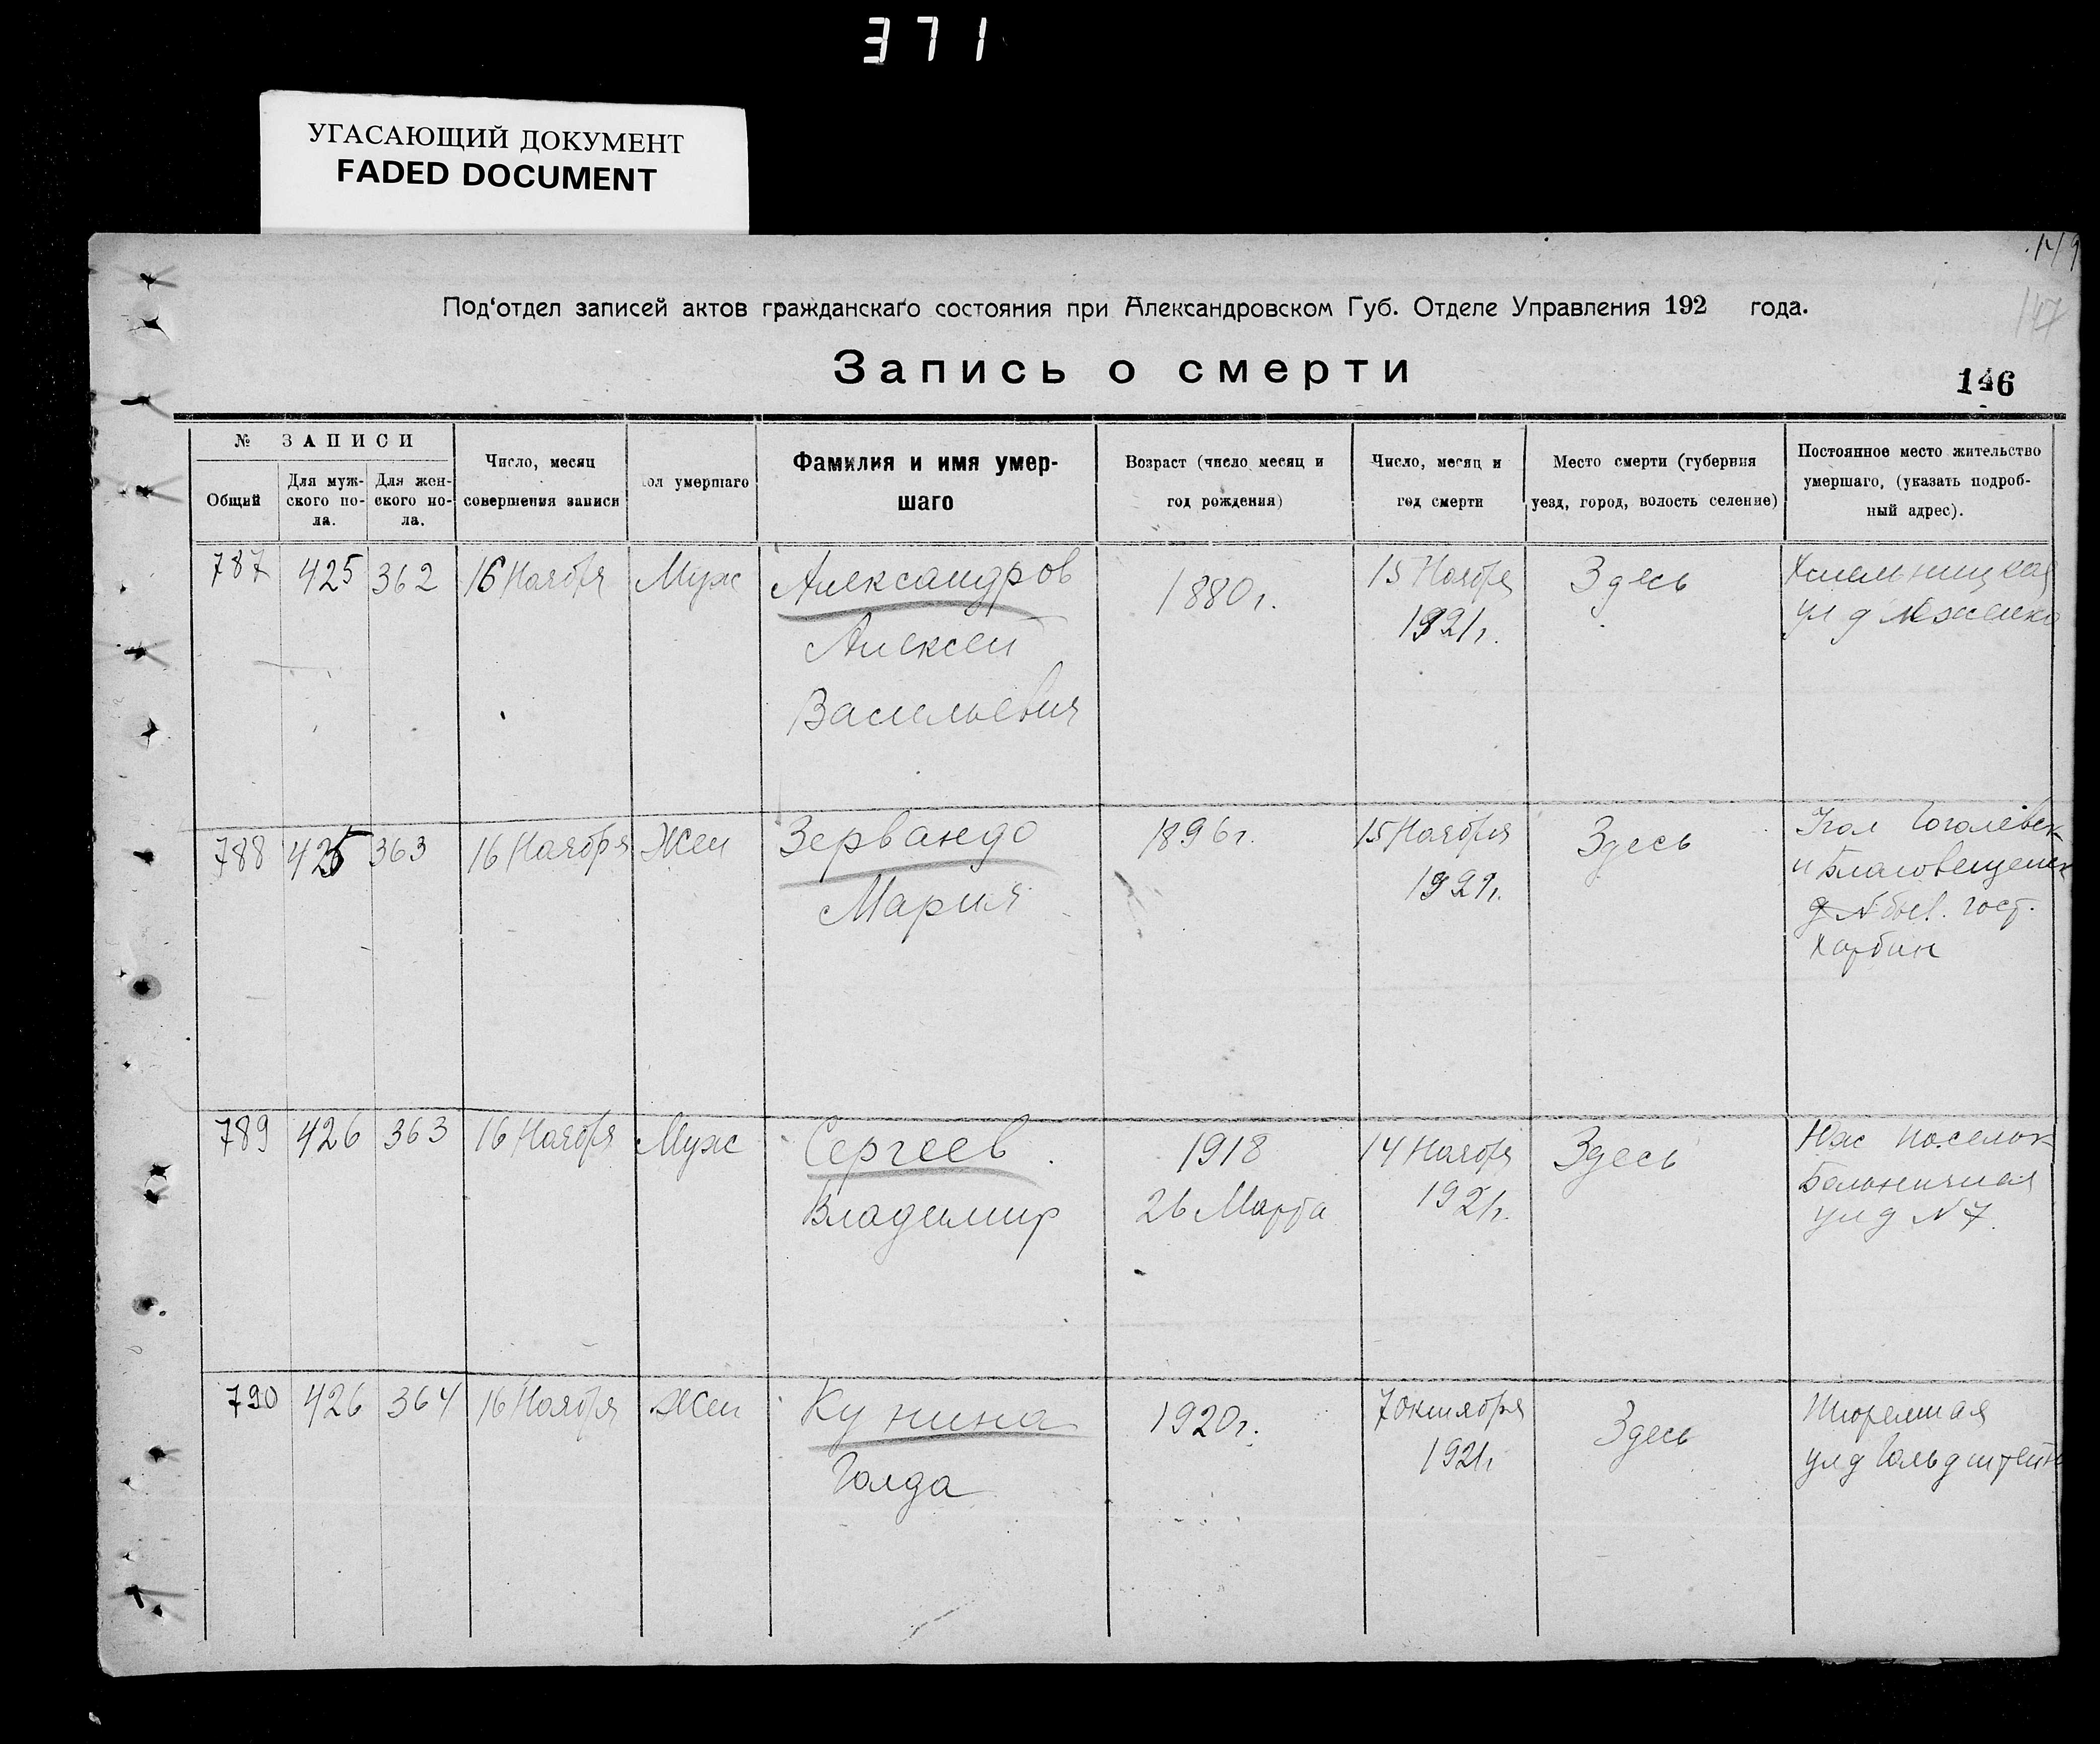 371
УГАСАЮЩИЙ ДОКУМЕНТ
FADED DOCUMENT
149
147
Под'отдел записей актов гражданскаго состояния при Александровском Губ. Отделе Управления 192 года.
Запись о смерти
146
№ ЗАПИСИ
Общий
Для муж-
ского по-
ла.
Для жен-
ского по-
ла.
Число, месяц
совершения записи
пол умершаго
Фамилия и имя умер-
шаго
Возраст (число месяц и
год рождения)
Число, месяц и
год смерти
Место смерти (губерния
уезд, город, волость селение)
Постоянное место жительство
умершаго, (указать подроб-
ный адрес).
787 425 362 16 Ноября Муж
Александров
Алексей
Васильевич
1880г.
15 Ноября
1921г.
Здесь
Хмельницкая
ул д
788 425 363 16 Ноября Жен
Зервандо
Мария
1896г.
15 Ноября
1921г.
Здесь
Угол Гоголевск
и Благовещенск
д № быв. гост.
Харбин
789 426 363 16 Ноября Муж
Сергеев
Владимир
1918
26 Марта
14 Ноября
1921г.
Здесь
Юж поселок
Больничная
ул д № 7.
790 426 364 16 Ноября Жен
Кунина
Голда
1920г.
7 октября
1921г
Здесь
Тюремная
ул д Гольдштейн